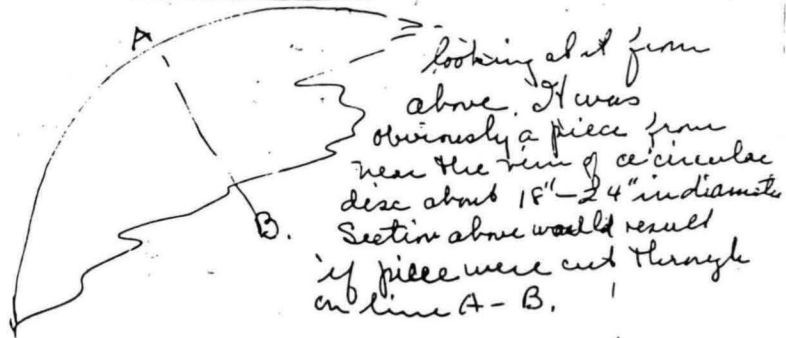 A
looking at it from
above. It was
obviously a piece from
near the rim of a circular
disc about 18"-24" in diameter
B.
Section above would result
if piece were cut through
on line A-B.